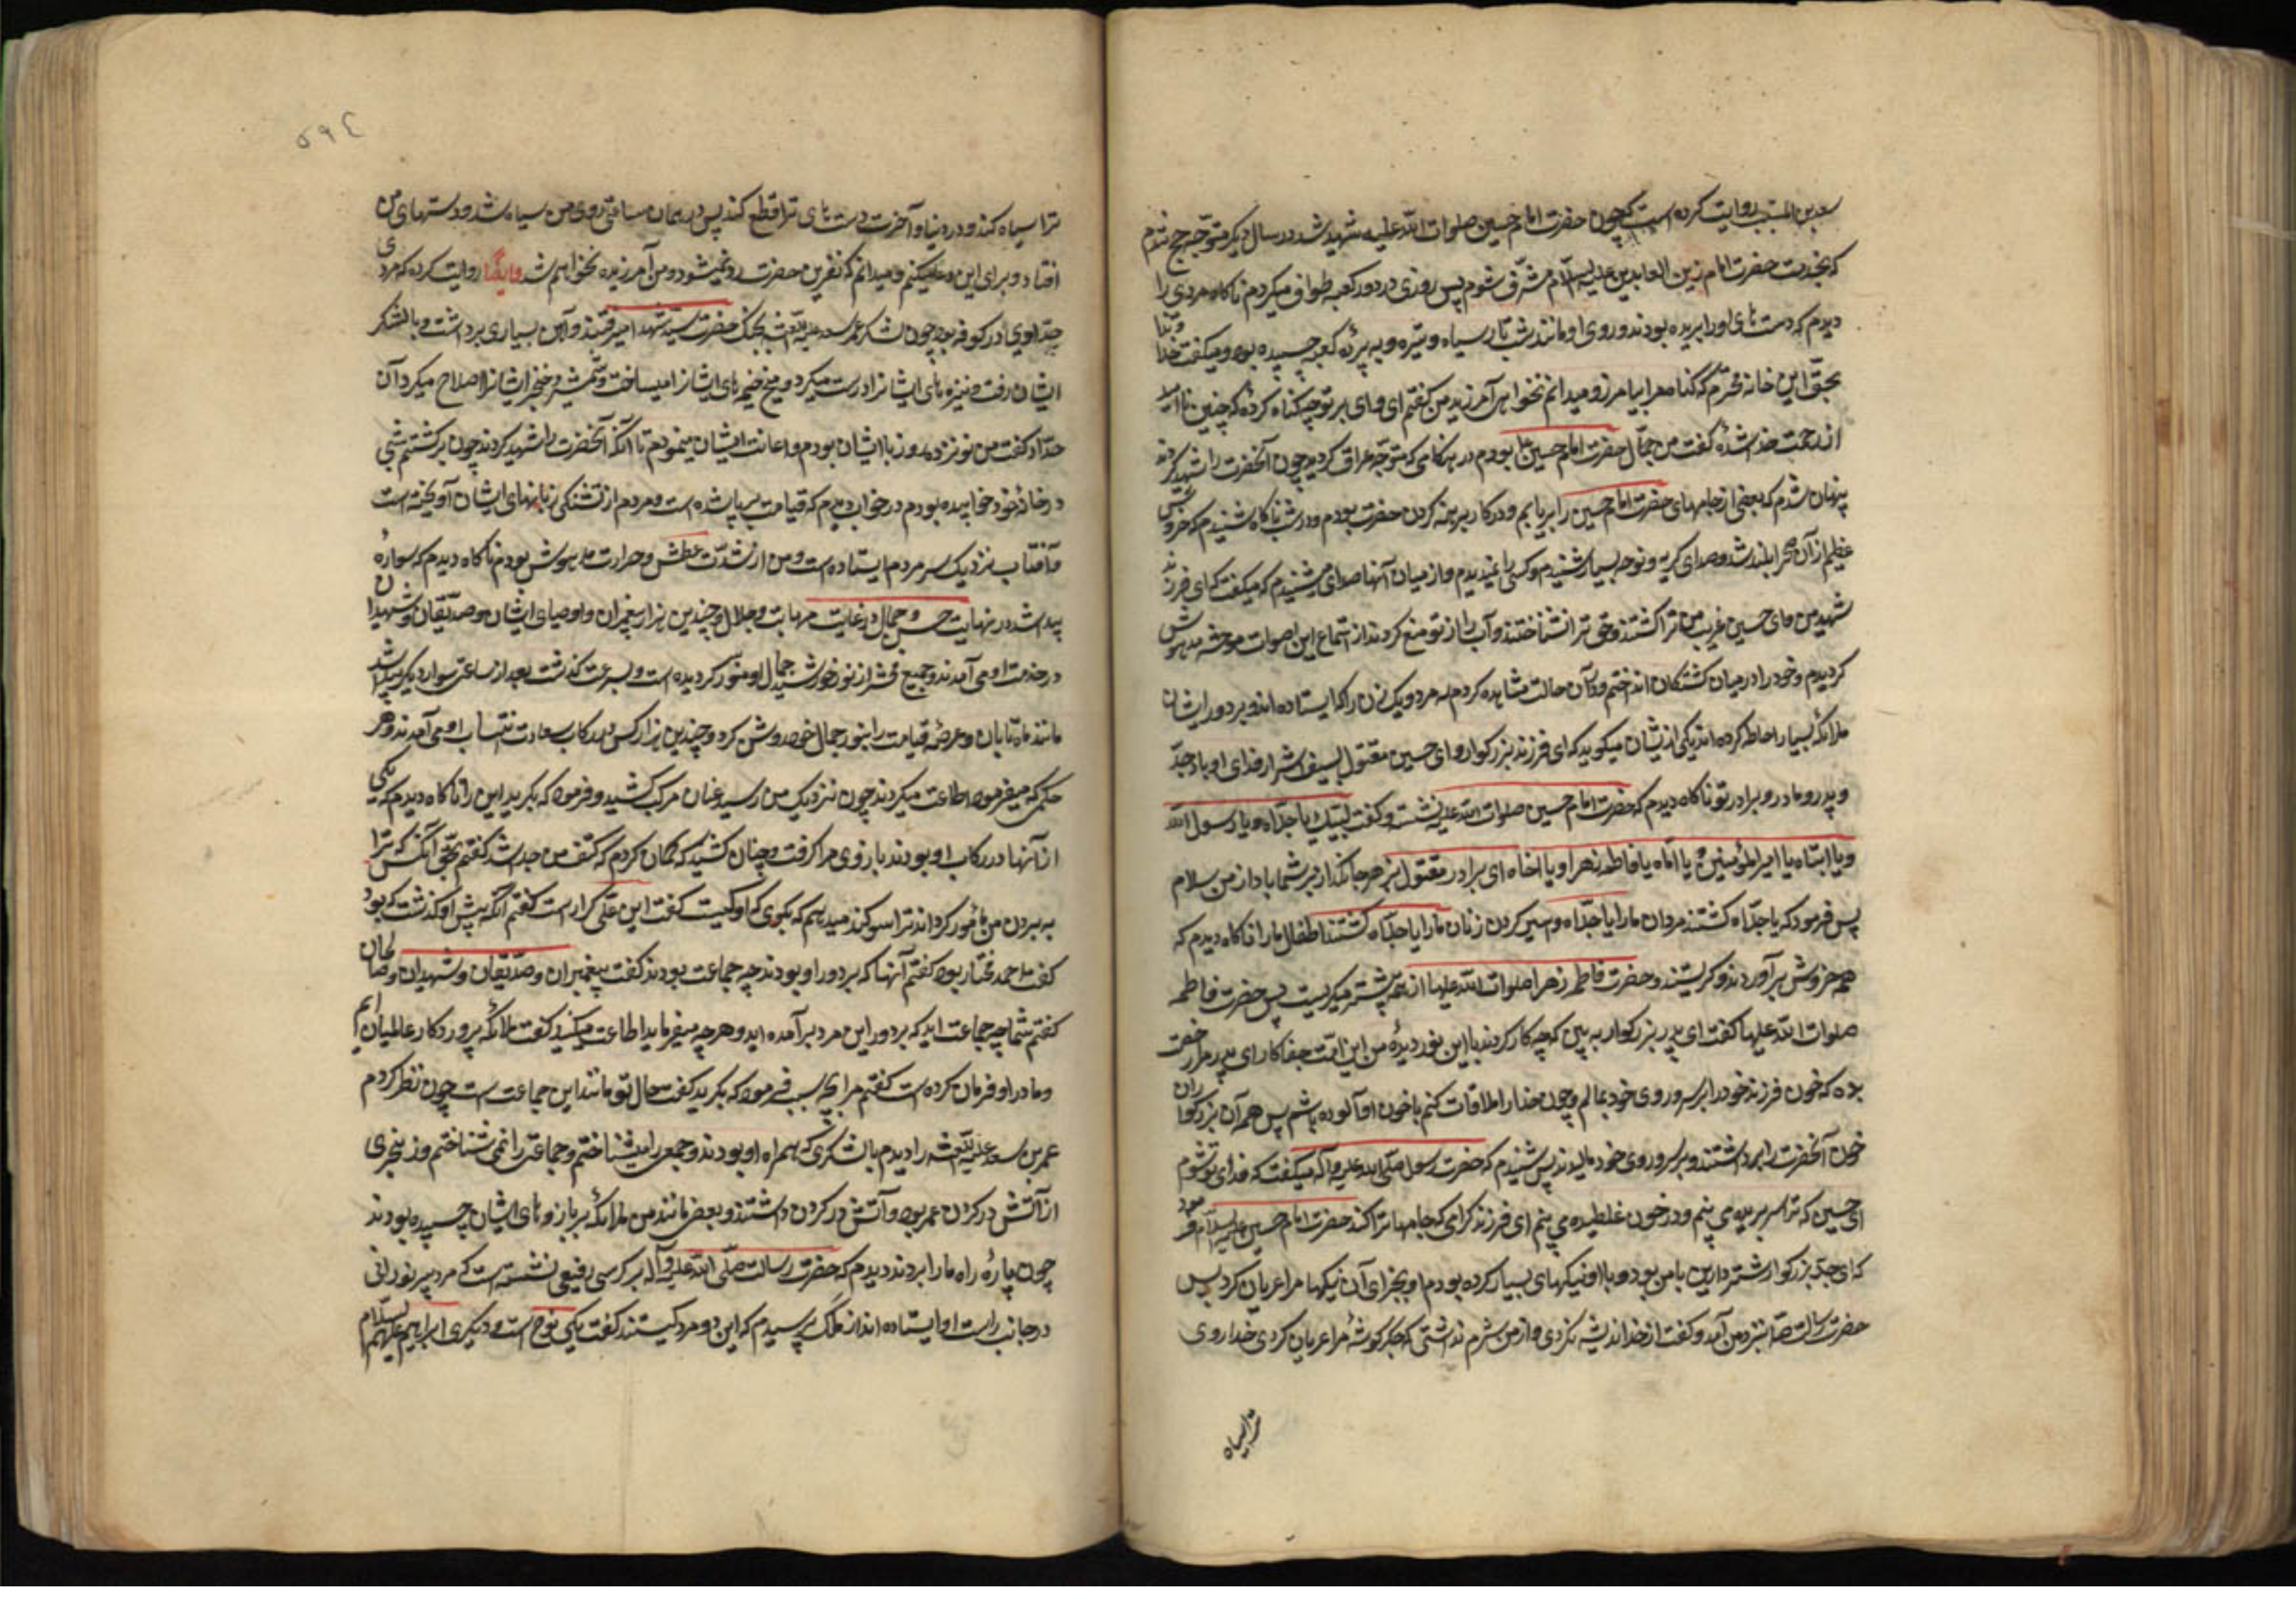 سعید بن المسیب روایت کرده است که چون حضرت امام حسین صلوات الله علیه شهید شد در سال دیگر متوجه حج شدم
که بخدمت حضرت امام زین العابدین علیه السلام مشرف شوم پس روزی در دور کعبه طواف میکردم ناکاه مردی را
دیدم که دست های او را بریده بودند و روی او مانند شب تار سیاه و تیره و به پردهٔ کعبه چسبیده بود و میکفت خداوندا
بحق این خانه محترم که کناه مرا بیامرز و میدانم نخواهی آمرزید من کفتم ای وای بر تو چه کناه کردهٔ که چنین ناامید
از رحمت خدا شدهٔ کفت من جمال حضرت امام حسین بودم در هنکامی که متوجه عراق کردید چون آنحضرت را شهید کردند
پنهان شدم که بعضی از جامهای حضرت امام حسین را بربایم و در کار برهنه کردن حضرت بودم در شب ناکاه شنیدم که خروش
عظیم از آن صحرا بلند شد و صدای کریه و نوحه بسیار شنیدم و کسی را نمیدیدم و از میان آنها صدای میشنیدم که میکفت که ای فرزند
شهید من و ای حسین غریب من ترا کشتند و حق ترا نشناختند و آب را از تو منع کردند از استماع این اصوات موحشه مدهوش
کردیدم و خود را در میان کشتکان انداختم و در آن حالت مشاهده کردم سه مرد و یک زن را که ایستاده اند و بر دور ایشان
ملائکهٔ بسیار احاطه کرده اند یکی از ایشان میکوید که ای فرزند بزرکوار و ای حسین مقتول بسیف اشرار فدای تو باد جد
و پدر و مادر و برادر تو ناکاه دیدم که حضرت امام حسین صلوات الله علیه نشست و کفت لبیک یا جداه و یا رسول الله
و یا ابتاه یا امیر المؤمنین و یا اماه یا فاطمه زهرا و یا اخاه ای برادر مقتول بزهر جانکداز بر شما باد از من سلام
پس فرمود که یا جداه کشتند مردان ما را یا جداه و اسیر کردن زنان ما را یا جداه کشتند اطفال ما را ناکاه دیدم که
همه خروش برآوردند و کریستند و حضرت فاطمه زهرا صلوات الله علیها از همه بیشتر میکریست پس حضرت فاطمه
صلوات الله علیها کفت ای پدر بزرکوار به بین که چه کار کردند با این نور دیدهٔ من این امت جفاکار ای پدر مرا رخصت
بده که خون فرزند خود را بر سر و روی خود بمالم و چون خدا را ملاقات کنم با خون او آلوده باشم پس همه آن بزرکواران
خون آنحضرت را برداشتند و بر سر و روی خود مالیدند پس شنیدم که حضرت رسول صلی الله علیه و آله میکفت که فدای تو شوم
ای حسین که ترا سر بریده می بینم و در خون غلطیده می بینم ای فرزند کرامی که جامهای ترا کند حضرت امام حسین علیه السلام فرمود
که ای جد بزرکوار شترداری با من بود و با او نیکیهای بسیار کرده بودم او بجزای آن نیکیها مرا عریان کرد پس
حضرت رسالت ص بنزد من آمد و کفت از خدا اندیشه نکردی و از من شرم نداشتی که جکر کوشهٔ مرا عریان کردی خدا روی
ترا سیاه
۵۹٤
ترا سیاه کند و در دنیا و آخرت دست های ترا قطع کند پس در همان ساعت روی من سیاه شد و دستهای من
افتاد و برای این دعا میکنم و میدانم که نفرین حضرت رد نمیشود و من آمرزیده نخواهم شد و ایضا روایت کرده که مردی
حدادی در کوفه بود چون لشکر عمر سعد علیه اللعنه بجنک حضرت سید شهدا میرفتند و آهن بسیاری برداشت و با لشکر
ایشان رفت و نیزه های ایشان را درست میکرد و میخ خیمه های ایشان را میساخت و شمشیر و خنجر ایشان را اصلاح میکرد آن
حداد کفت من نوزده روز با ایشان بودم و اعانت ایشان مینمودم تا آنکه آنحضرت را شهید کردند چون برکشتم شبی
در خانهٔ خود خوابیده بودم در خواب دیدم که قیامت برپا شده است و مردم از تشنکی زبانهای ایشان آویخته است
و آفتاب نزدیک سر مردم ایستاده است و من از شدت عطش و حرارت مدهوش بودم ناکاه دیدم که سوارهٔ
پیدا شد در نهایت حسن و جمال و در غایت مهابت و جلال و چندین هزار پیغمبران و اوصیای ایشان و صدیقان و شهیدان
در خدمت او می آمدند و جمیع محشر از نور خورشید جمال او منور کردیده است و بسرعت کذشت بعد از ساعتی سوار دیکر پیدا شد
مانند ماه تابان و عرصهٔ قیامت را بنور جمال خود روشن کرد و چندین هزار کس در رکاب سعادت انتساب او می آمدند و هر
حکمی که میفرمود اطاعت میکردند چون نزدیک من رسید عنان مرکب کشید و فرمود که بکیرید این را ناکاه دیدم که یکی
از آنها در رکاب او بودند بازوی مرا کرفت و چنان کشید که کمان کردم که کتف من جدا شد کفتم بحق آنکس که ترا
به بردن من مأمور کرداند ترا سوکند میدهم که بکوی که او کیست کفت این علی کرار است کفتم آنکه پیش او کذشت که بود
کفت احمد مختار بود کفتم آنها که بر دور او بودند چه جماعت بودند کفت پیغمبران و صدیقان و شهیدان و صالحان
کفتم شما چه جماعت اید که بر دور این مرد برآمده اید و هر چه میفرماید اطاعت میکنید کفت ملائکهٔ پروردکار عالمیان ایم
و ما را در او فرمان کرده است کفتم مرا بچه سبب فرمود که بکیرید کفت حال تو مانند این جماعت است چون نظر کردم
عمر بن سعد علیه اللعنه را دیدم با لشکری که همراه او بودند و جمعی را میشناختم و جماعتی را نمی شناختم و زنجیری
از آتش در کردن عمر بود و آتش در کردن داشتند و بعضی مانند من ملائکه بر بازوهای ایشان چسبیده بودند
چون پارهٔ راه ما را بردند دیدم که حضرت رسالت صلی الله علیه و آله بر کرسی رفیعی نشسته است که مرد پیر نورانی
در جانب راست او ایستاده اند از ملک پرسیدم که این دو مرد کیستند کفت یکی نوح است و دیکری ابراهیم علیهم السلام